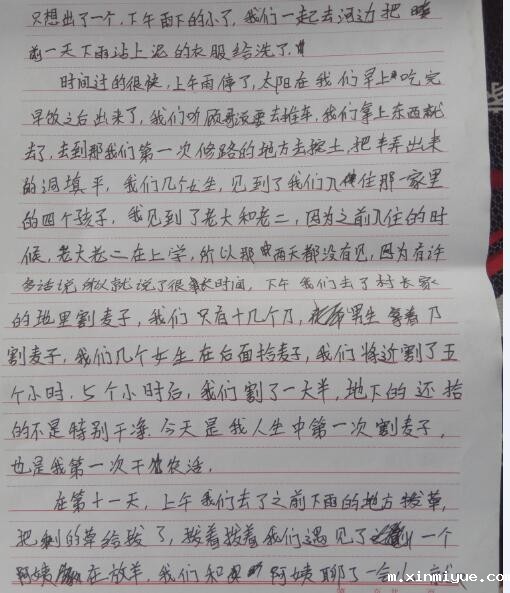 只想出了一个,下午雨下的小了,我们一起去河边把
前一天下雨沾上泥的衣服给洗了.
时间过的很快,上午雨停了,太阳在我们早上吃完
早饭之后出来了,我们听顾哥说要去推车,我们拿上东西就
去了,去到那我们第一次修路的地方去挖土,把车弄出来
的洞填平,我们几个女生,见到了我们入住那一家里
的四个孩子,我见到了老大和老二,因为之前入住的时
候,老大老二在上学,所以那两天都没有见,因为有许
多话说所以就说了很长时间,下午我们去了村长家
的地里割麦子,我们只有十几个刀,男生拿着刀
割麦子,我们几个女生在后面拾麦子,我们将近割了五
个小时.5个小时后,我们割了一大半,地下的还拾
的不是特别干净.今天是我人生中第一次割麦子,
也是我第一次干农活.
在第十一天,上午我们去了之前下雨的地方拔草,
把剩的草给拔了,拔着拔着我们遇见了一个
阿姨在放羊,我们和阿姨聊了一会儿
m.xinmiyue.com